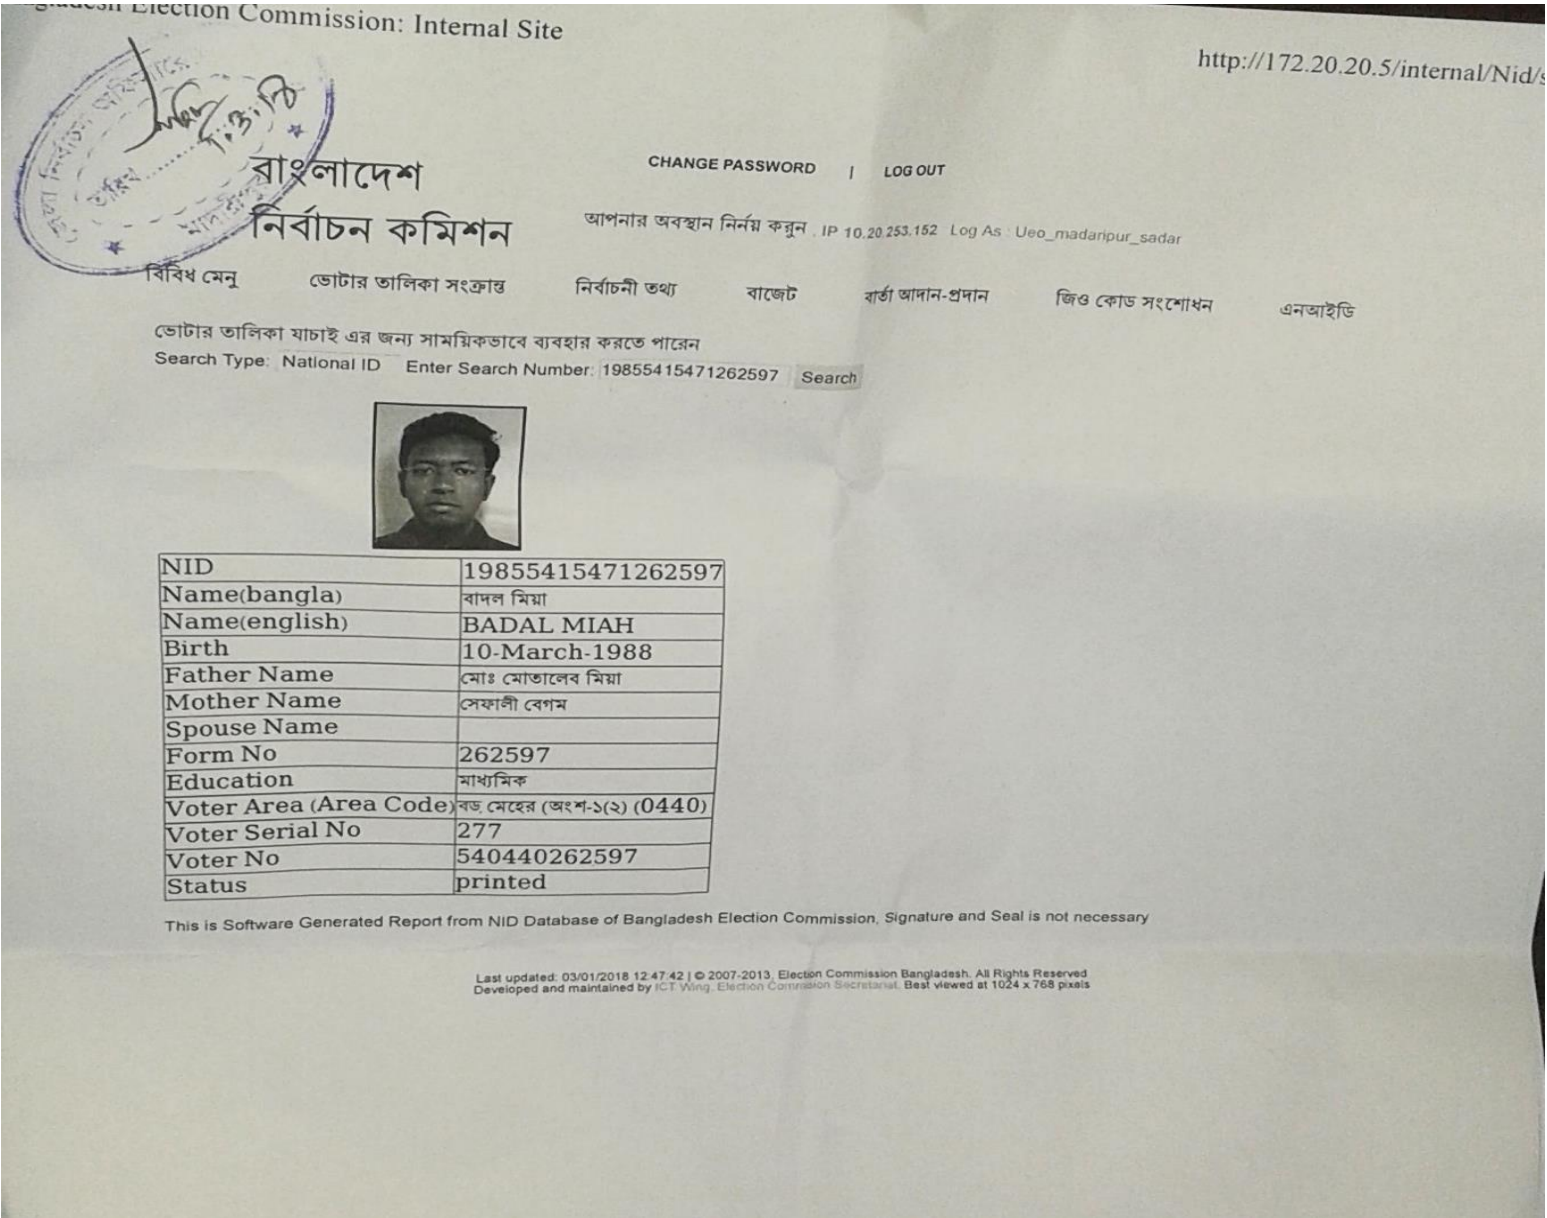 Election Commission: Internal Site
http://172.20.20.5/internal/Nid/s
জেলা নির্বাচন অফিসারের
তারিখ
মাদারীপুর
বাংলাদেশ
নির্বাচন কমিশন
CHANGE PASSWORD | LOG OUT
আপনার অবস্থান নির্নয় করুন . IP 10.20.253.152 Log As : Ueo_madaripur_sadar
বিবিধ মেনু ভোটার তালিকা সংক্রান্ত নির্বাচনী তথ্য বাজেট বার্তা আদান-প্রদান জিও কোড সংশোধন এনআইডি
ভোটার তালিকা যাচাই এর জন্য সাময়িকভাবে ব্যবহার করতে পারেন
Search Type: National ID Enter Search Number: 19855415471262597 Search
NID 19855415471262597
Name(bangla) বাদল মিয়া
Name(english) BADAL MIAH
Birth 10-March-1988
Father Name মোঃ মোতালেব মিয়া
Mother Name সেফালী বেগম
Spouse Name
Form No 262597
Education মাধ্যমিক
Voter Area (Area Code) বড় মেহের (অংশ-১(২) (0440)
Voter Serial No 277
Voter No 540440262597
Status printed
This is Software Generated Report from NID Database of Bangladesh Election Commission, Signature and Seal is not necessary
Last updated: 03/01/2018 12:47:42 | © 2007-2013, Election Commission Bangladesh. All Rights Reserved
Developed and maintained by ICT Wing, Election Commision Secretariat. Best viewed at 1024 x 768 pixels